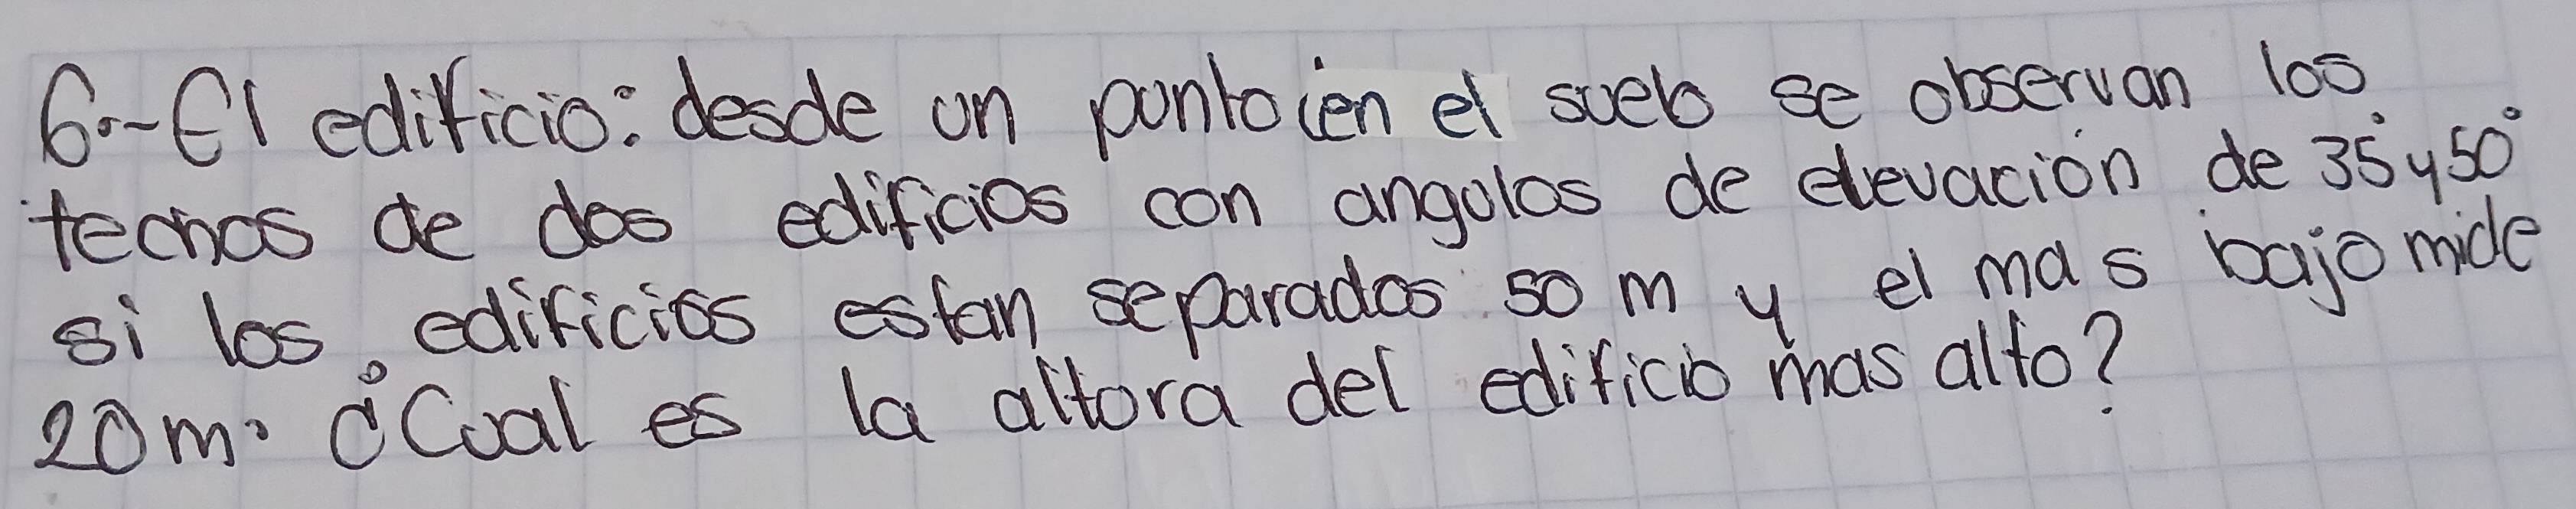 6.-El edificio: desde un punto en el suelo se observan los
techos de dos edificios con angulos de elevación de 35° y 50°
si los edificios estan separados 50 m y el mas bajo mide
20m. ¿Cual es la altura del edificio mas alto?